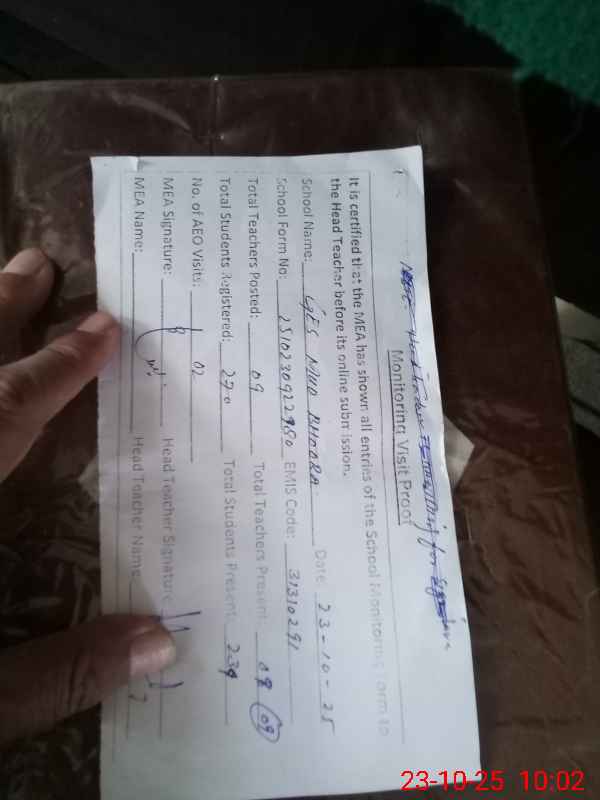 Monitoring Visit Proof
It is certified that the MEA has shown all entries of the School Monitoring Form to
the Head Teacher before its online submission.
Date: 23-10-25
School Name: GES MUD BHOORA
School Form No: EMIS Code: 31310291
Total Teachers Posted: 09 Total Teachers Present: 09 (09)
Total Students Registered: 270 Total Students Present: 239
No. of AEO Visits: 02
MEA Signature: Head Teacher Signature
MEA Name: Head Teacher Name
23-10-25 10:02